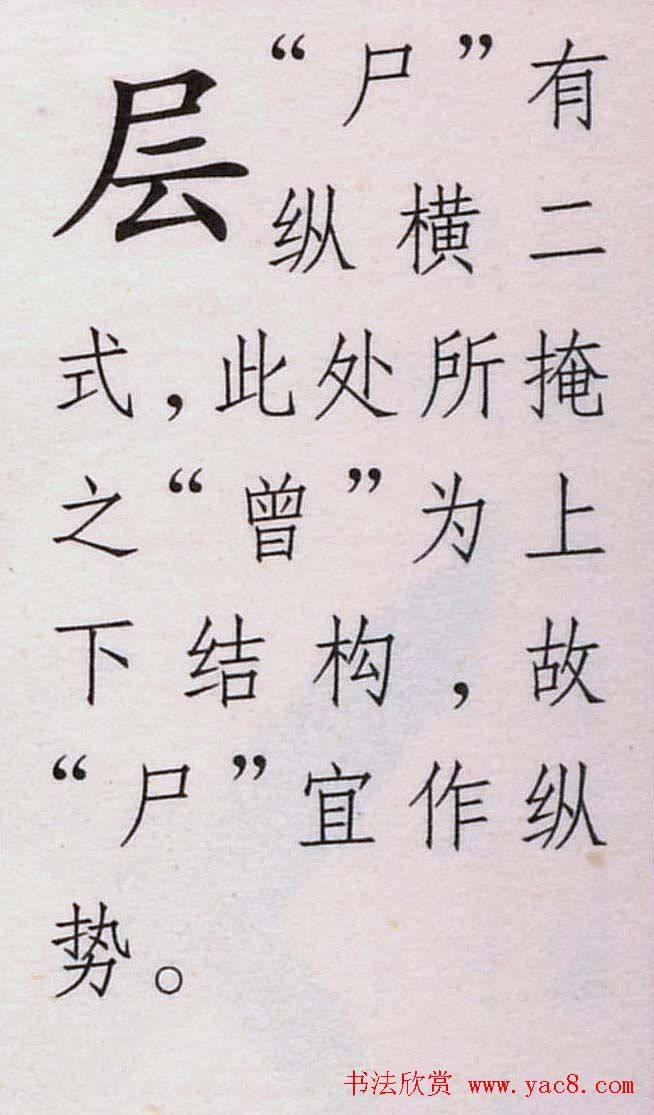 层 “尸”有
纵横二
式，此处所掩
之“曾”为上
下结构，故
“尸”宜作纵
势。
书法欣赏 www.yac8.com